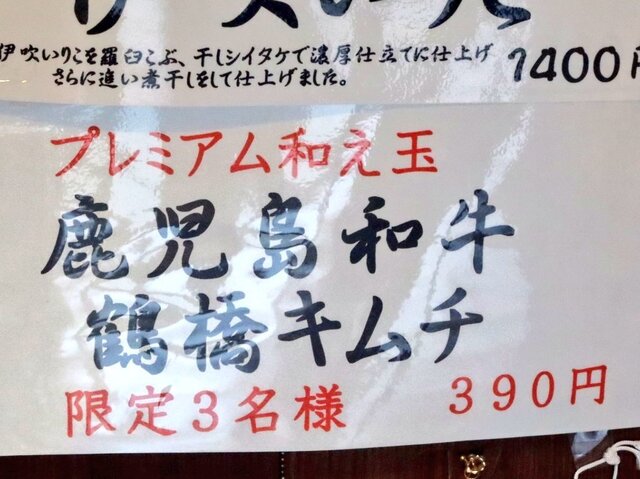 伊吹いりこを羅臼こぶ、干しシイタケで濃厚仕立てに仕上げ
さらに追い煮干しをして仕上げました。
1400円
プレミアム和え玉
鹿児島和牛
鶴橋キムチ
限定3名様 390円